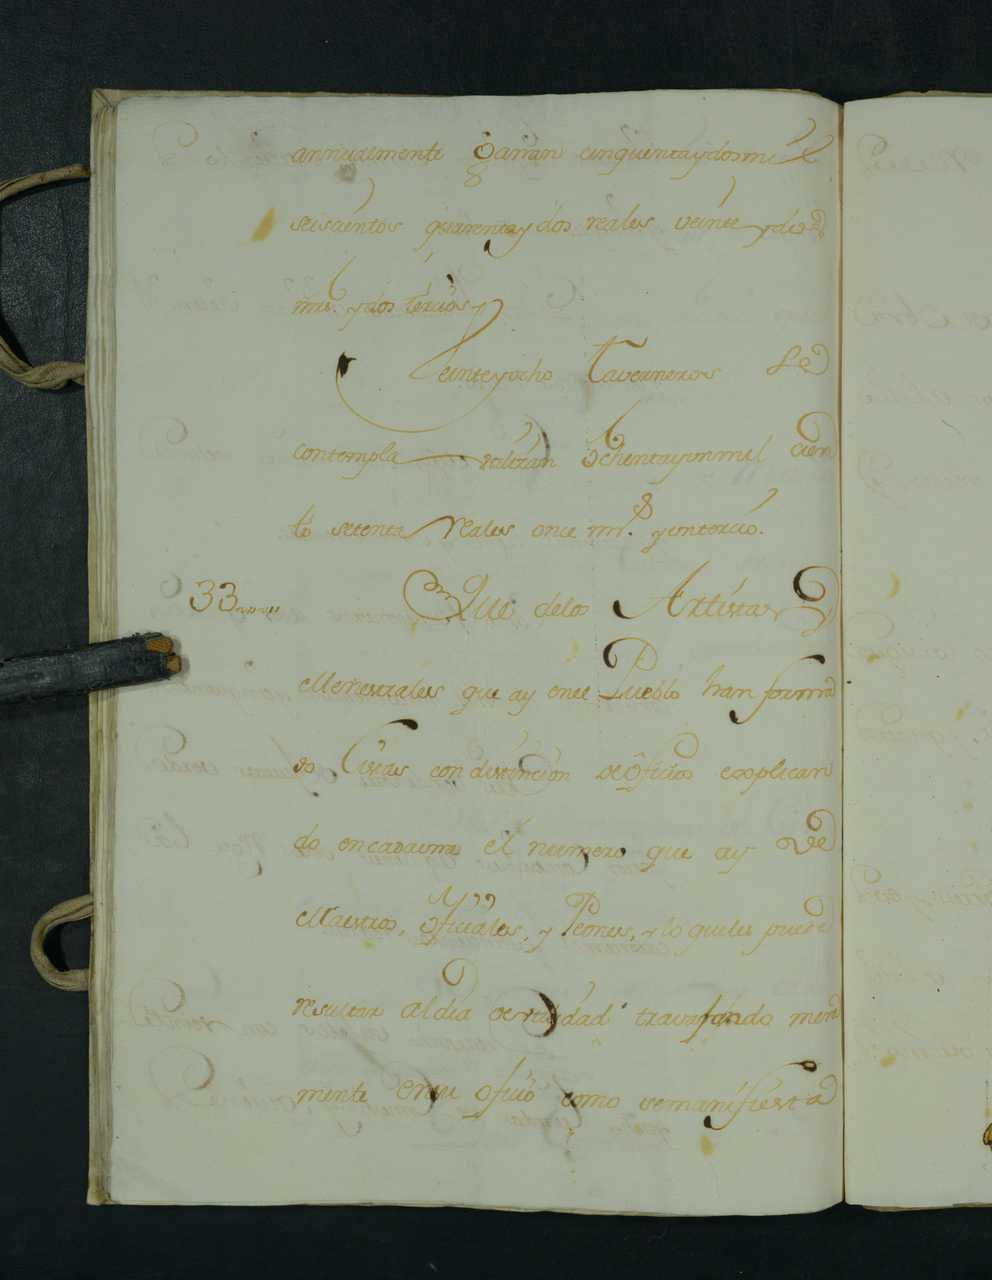 annualmente ganan cinquentaydosmil
seiscientos quarentaydos reales veinte ydos
mrs. ydos tercios
Veinteyocho Taverneros se
contempla utilizan ochentayunmil cien
to setenta reales once mrs. yuntercio.
33 Que delos Artistas y
Menestrales que ay enel Pueblo han forma
do Listas con distincion de oficios explican
do encadauna el numero que ay de
Maestros, oficiales, y Peones, y lo queles puede
resultar aldia de utilidad travajando
mente ensu oficio como semanifiesta